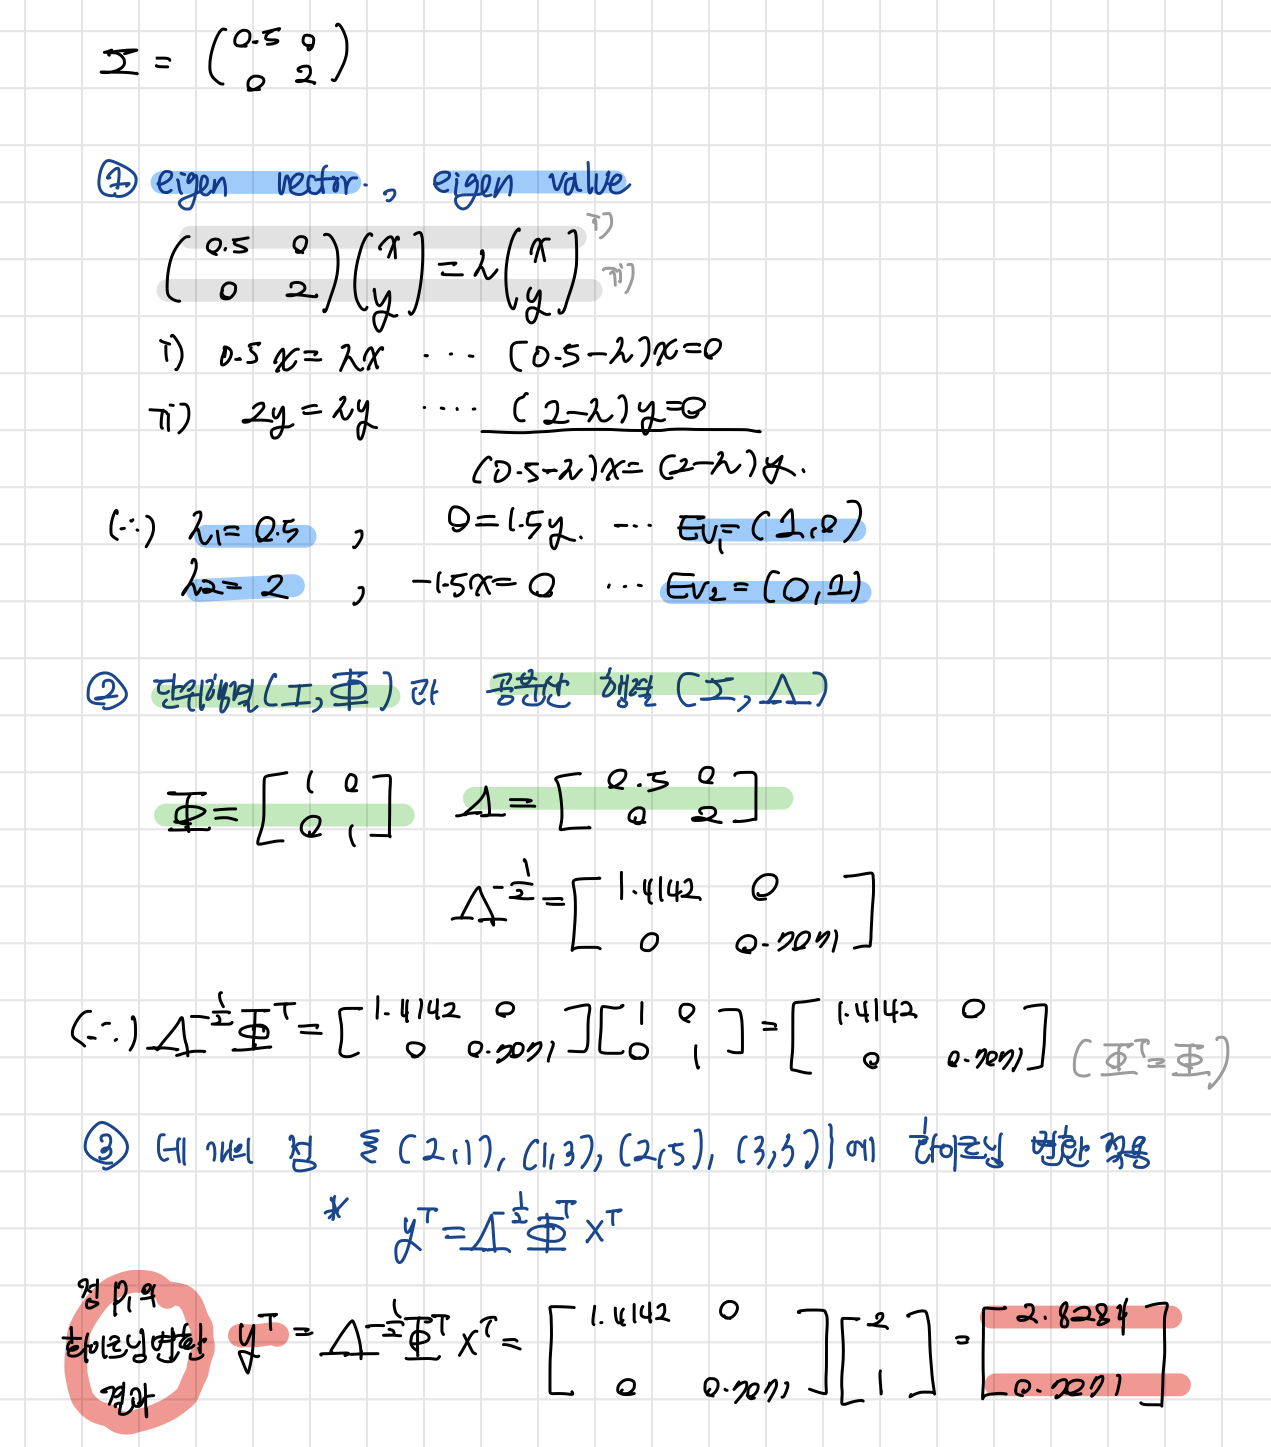 Σ = (0.5 0
0 2)
① eigen vector, eigen value
(0.5 0
0 2)(x
y) = λ(x
y) i) ii)
i) 0.5x = λx ··· (0.5-λ)x=0
ii) 2y = λy ···· (2-λ)y=0
(0.5-λ)x = (2-λ)y.
(∴) λ₁= 0.5 , 0=1.5y. ··· EV₁=(1,0)
λ2= 2 , -1.5x= 0 ··· EV₂ = (0,1)
② 단위행렬(I,Φ)과 공분산 행렬 (Σ, Λ)
Φ= [1 0
0 1] Λ= [0.5 0
0 2]
Λ^-1/2 = [1.4142 0
0 0.7071]
(∴) Λ^-1/2 Φ^T = [1.4142 0
0 0.7071][1 0
0 1] = [1.4142 0
0 0.7071] (Φ^T=Φ)
③ 네 개의 점 {(2,1), (1,3), (2,5), (3,3)}에 화이트닝 변환 적용
* y^T = Λ^-1/2 Φ^T x^T
점 P₁의
화이트닝변환
결과
y^T = Λ^-1/2 Φ^T x^T = [1.4142 0
0 0.7071][2
1] = [2.8284
0.7071]